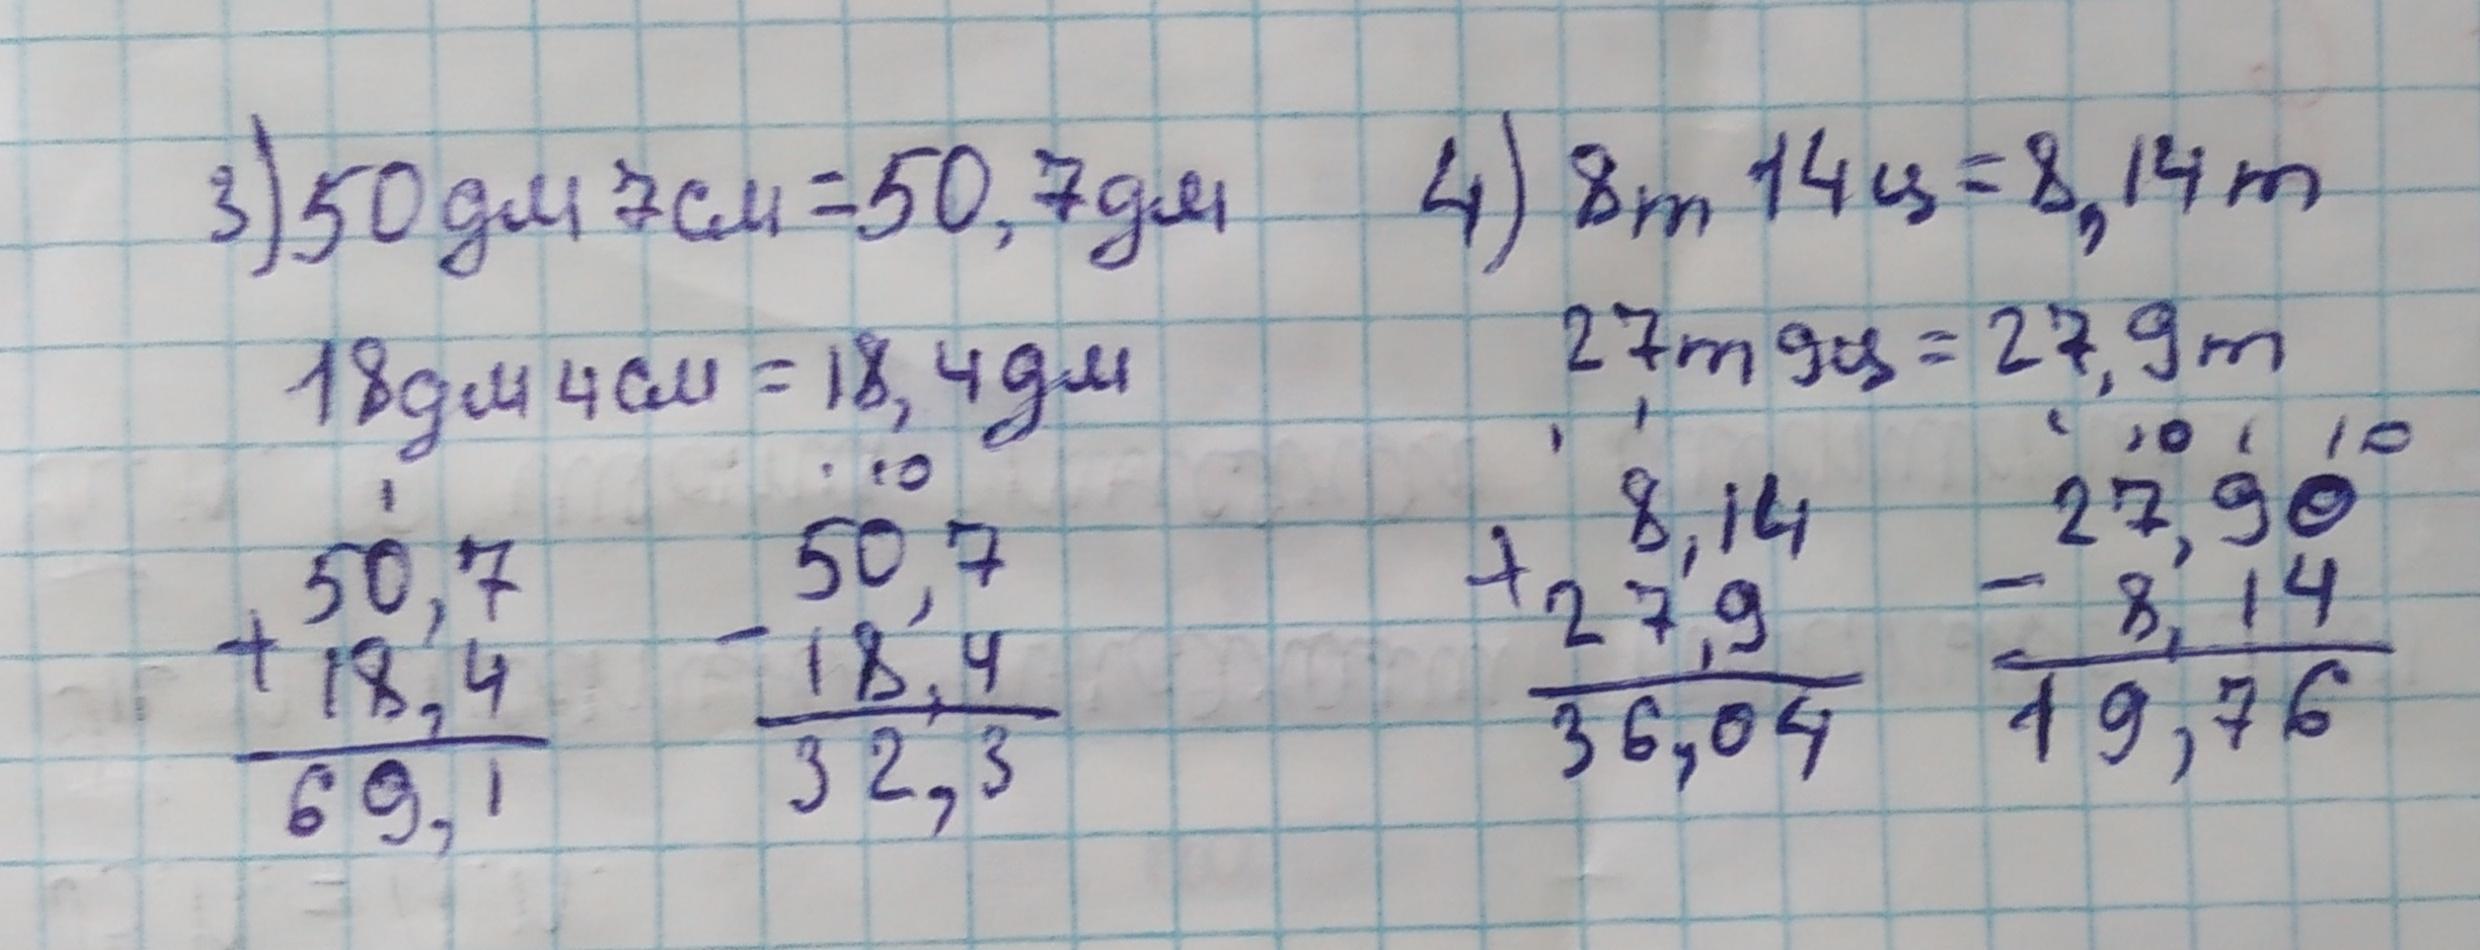 3) 50 дм 7 см = 50,7 дм
18 дм 4 см = 18,4 дм
1
50,7
+ 18,4
69,1
. 10
50,7
- 18,4
32,3
4) 8 т 14 ц = 8,14 т
27 т 9 ц = 27,9 т
1 1
8,14
+ 27,9
36,04
. 10 1 10
27,90
- 8,14
19,76